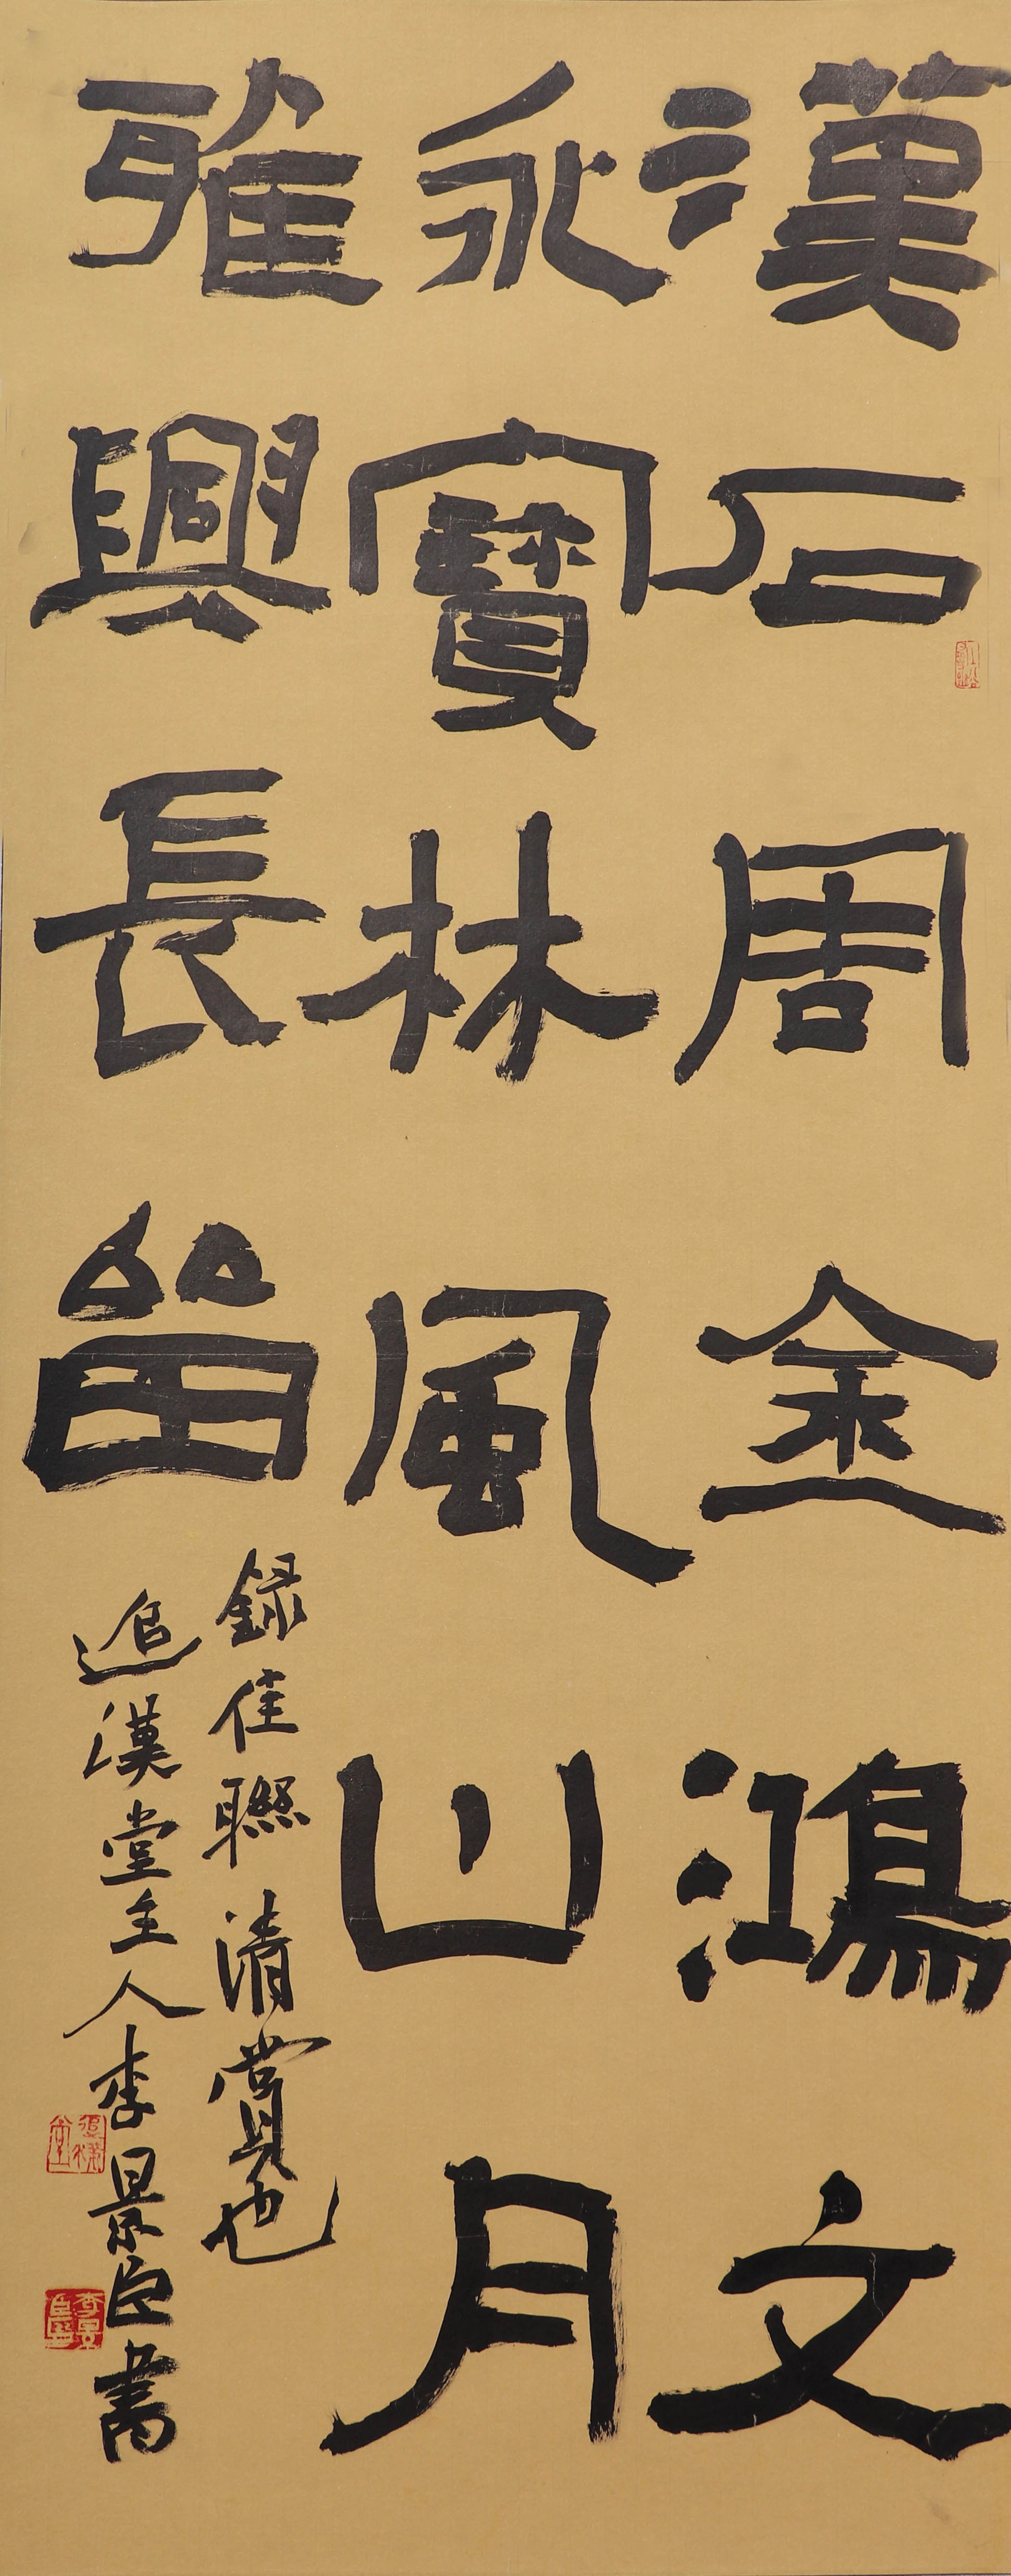 漢石周金鴻文
永寶林風山月
雅興長留
録佳聯清賞也
追漢堂主人李景臣書
追漢堂